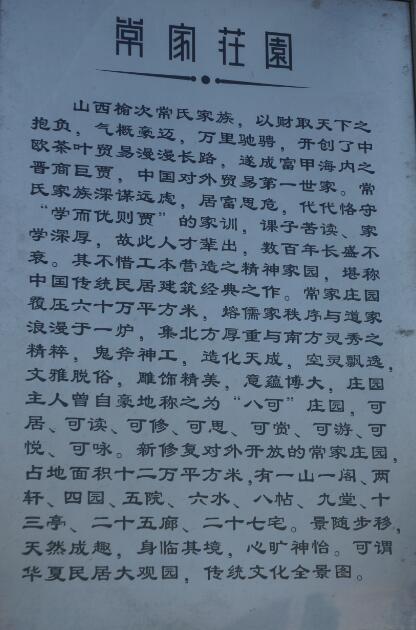 常家莊園
山西榆次常氏家族，以财取天下之
抱负，气概豪迈，万里驰骋，开创了中
欧茶叶贸易漫漫长路，遂成富甲海内之
晋商巨贾，中国对外贸易第一世家。常
氏家族深谋远虑，居富思危，代代恪守
“学而优则贾”的家训，课子苦读、家
学深厚，故此人才辈出，数百年长盛不
衰。其不惜工本营造之精神家园，堪称
中国传统民居建筑经典之作。常家庄园
覆压六十万平方米，熔儒家秩序与道家
浪漫于一炉，集北方厚重与南方灵秀之
精粹，鬼斧神工，造化天成，空灵飘逸，
文雅脱俗，雕饰精美，意蕴博大，庄园
主人曾自豪地称之为“八可”庄园，可
居、可读、可修、可思、可赏、可游、可
悦、可咏。新修复对外开放的常家庄园，
占地面积十二万平方米，有一山一阁、两
轩、四园、五院、六水、八帖、九堂、十
三亭、二十五廊、二十七宅。景随步移，
天然成趣，身临其境，心旷神怡。可谓
华夏民居大观园，传统文化全景图。